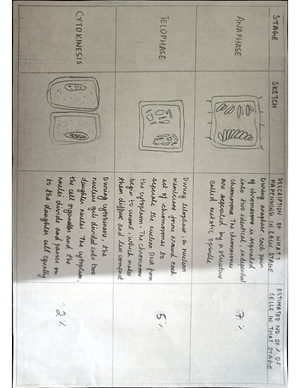 STAGE
SKETCH
DESCRIPTION OF WHAT'S
HAPPENING IN EACH STAGE
ESTIMATED NO OR % OF
CELLS IN THAT STAGE
ANAPHASE
During anaphase each pair
of chromosomes is separated
into two identical, independent
chromosome. The chromosomes
are separated by a structure
called mitotic spindle
7%
TELOPHASE
During telophase, a nuclear
membrane forms around each
set of chromosomes to
separate the nuclear DNA from
the cytoplasm. The chromosomes
begin to uncoil, which makes
them diffuse and less compact
5%
CYTOKINESIS
During cytokinesis, the
nucleus gets divided into two
daughter nuclei. The cytoplasm,
the cell organelles and the
nuclei divides and passes on
to the daughter cell equally
2%